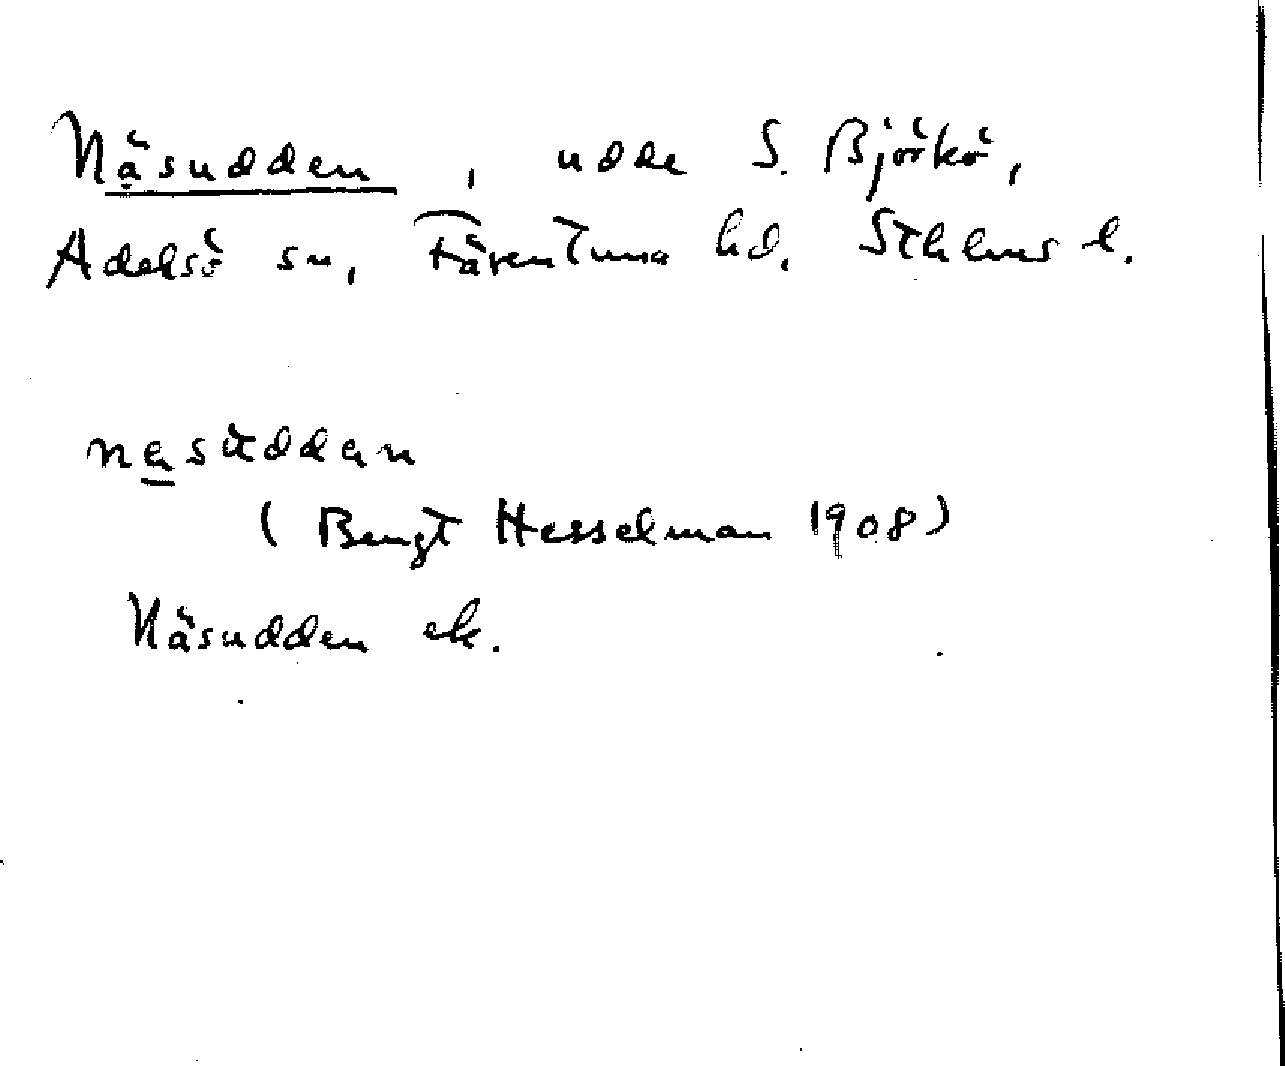 Näsudden, udde S. Björkö,
Adelsö sn, Färentuna hd. Sthlms l.
nasuddan
(Bengt Hesselman 1908)
Näsudden ek.